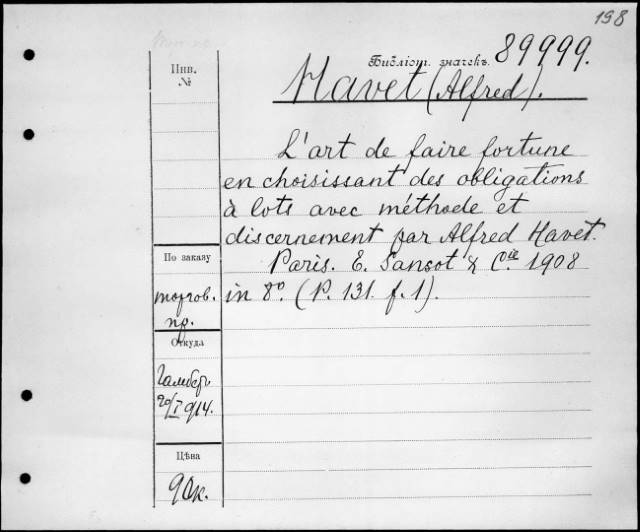 198
Библіот. значекъ. 89999.
Инв.
№
Havet (Alfred).
L'art de faire fortune
en choisissant des obligations
à lots avec méthode et
discernement par Alfred Havet.
Paris. E. Sansot & Cie. 1908
in 8º. (P. 131. f. 1).
По заказу
торгов.
пр.
Откуда
Гамбер
20/I 914.
Цѣна
90к.